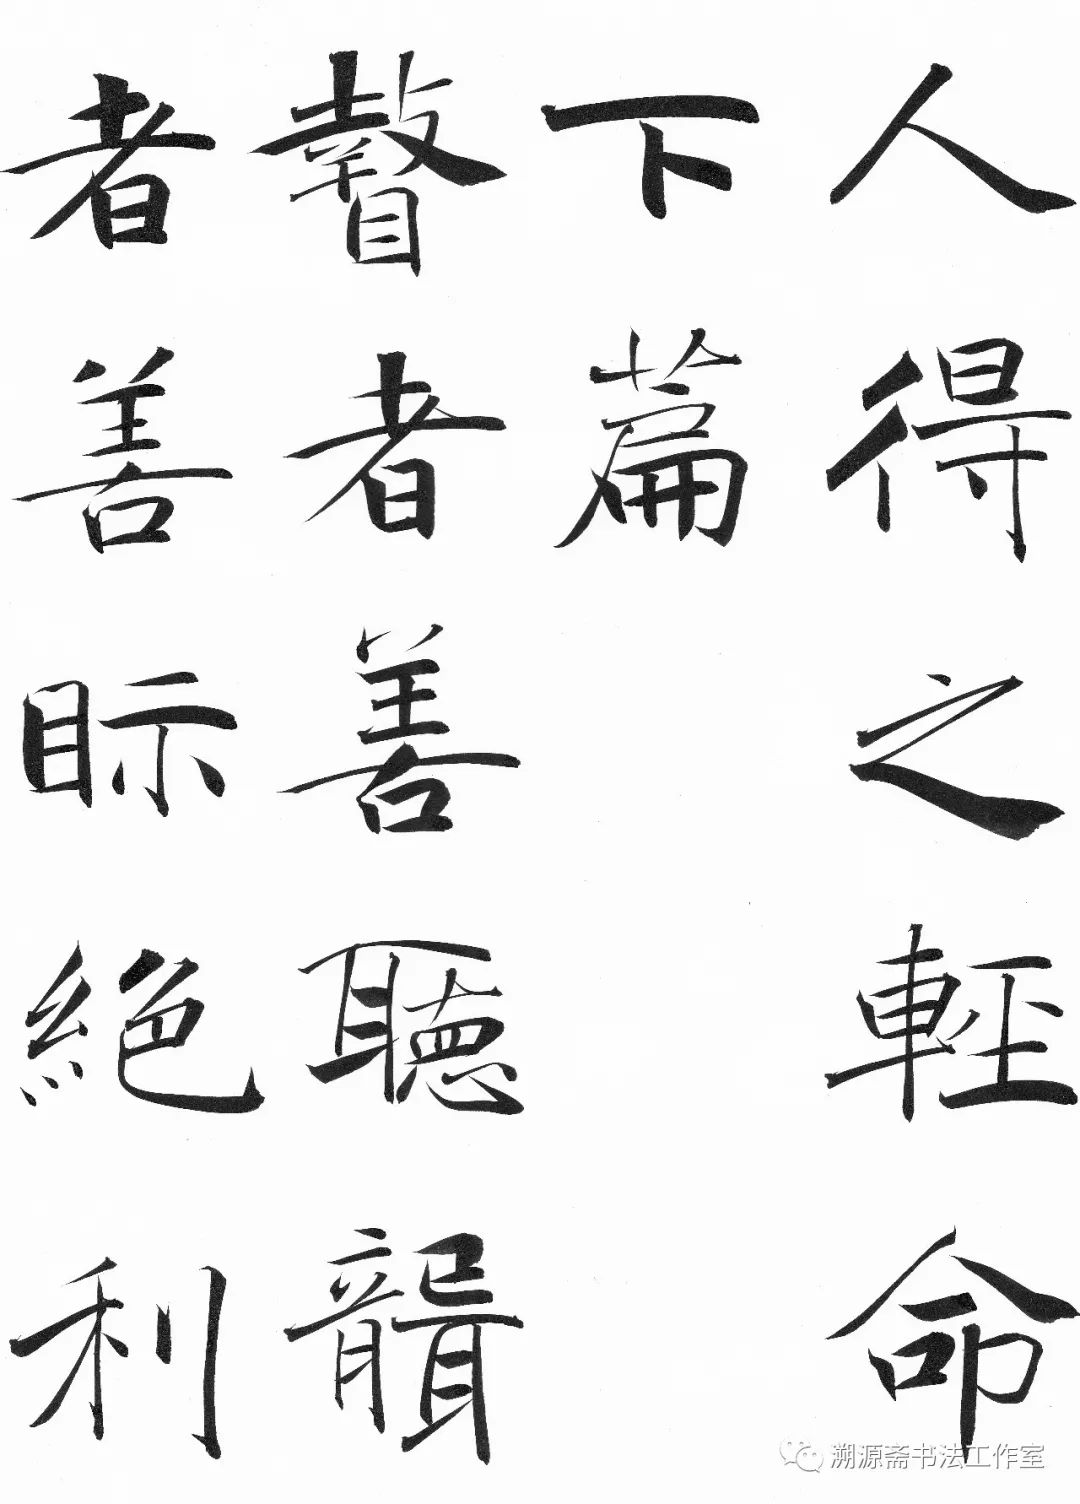 人得之輕命
下篇
瞽者善聽聾
者善眎絶利
溯源斋书法工作室